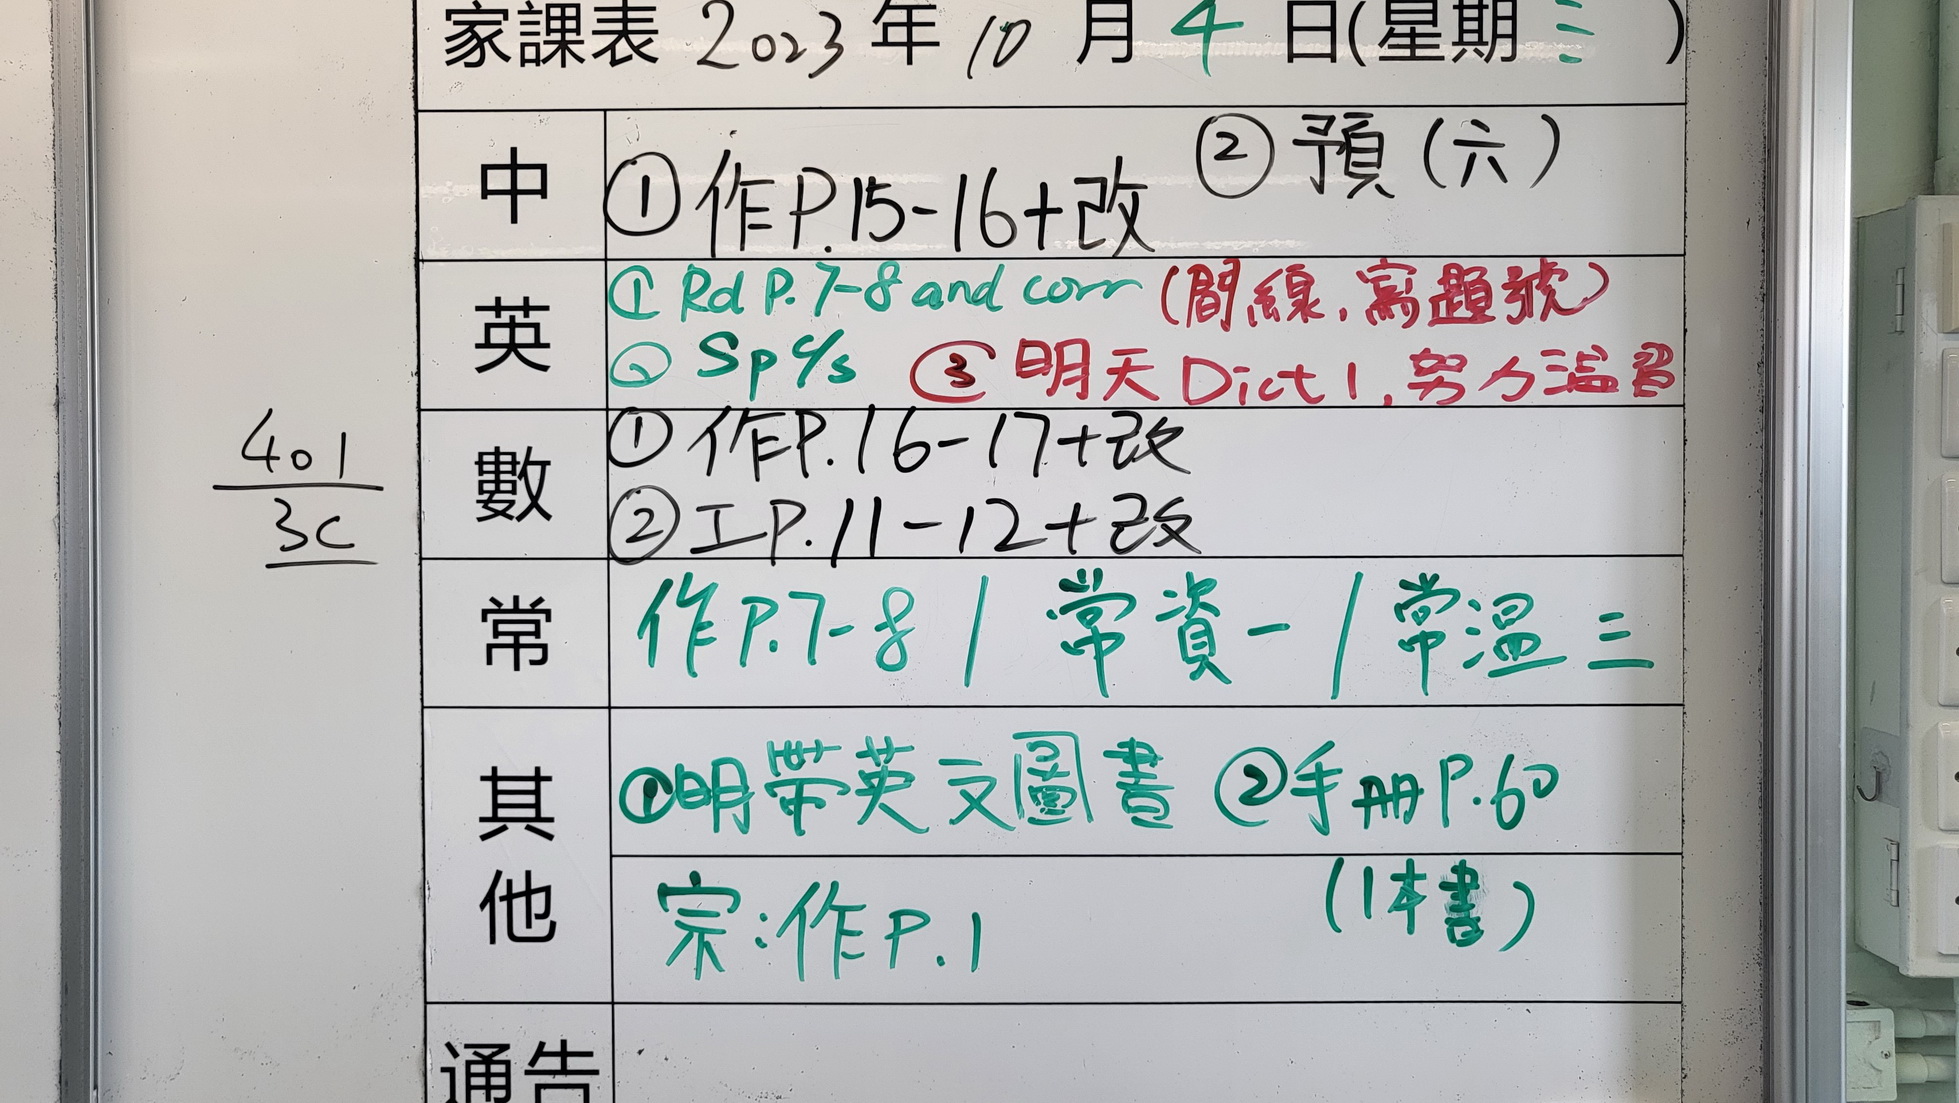 家課表 2023 年 10 月 4 日(星期 三 )
中
① 作P.15-16+改 ② 預(六)
英
① Rd P.7-8 and corr (間線,寫題號)
② Sp c/s ③ 明天Dict 1,努力溫習
401
3C
數
① 作P.16-17+改
② 工P.11-12+改
常
作P.7-8 / 常資一 / 常溫三
其他
①明帶英文圖書 ②手册P.60
宗:作P.1 (1本書)
通告